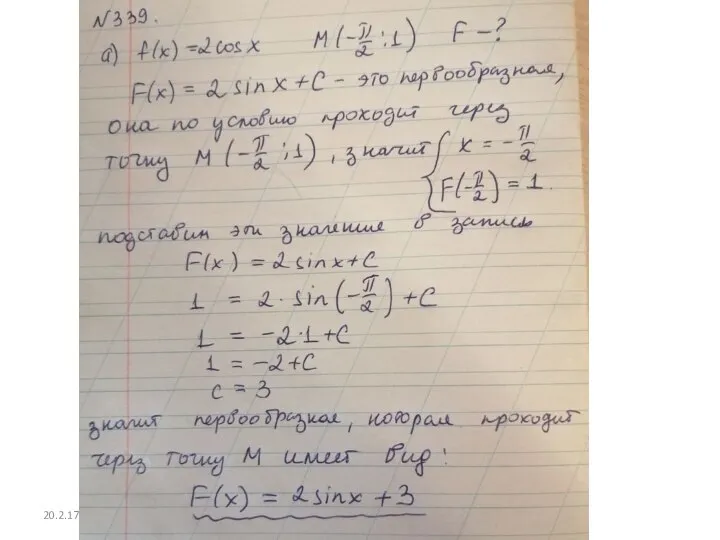 №339.
а) f(x) = 2cos x M(-π/2; 1) F - ?
F(x) = 2 sin x + C - это первообразная,
она по условию проходит через
точку M (-π/2; 1), значит { x = -π/2
F(-π/2) = 1.
подставим эти значение в запись
F(x) = 2 sin x + C
1 = 2 · sin(-π/2) + C
1 = -2·1 + C
1 = -2 + C
c = 3
значит первообразная, которая проходит
через точку M имеет вид:
F(x) = 2 sin x + 3
20.2.17